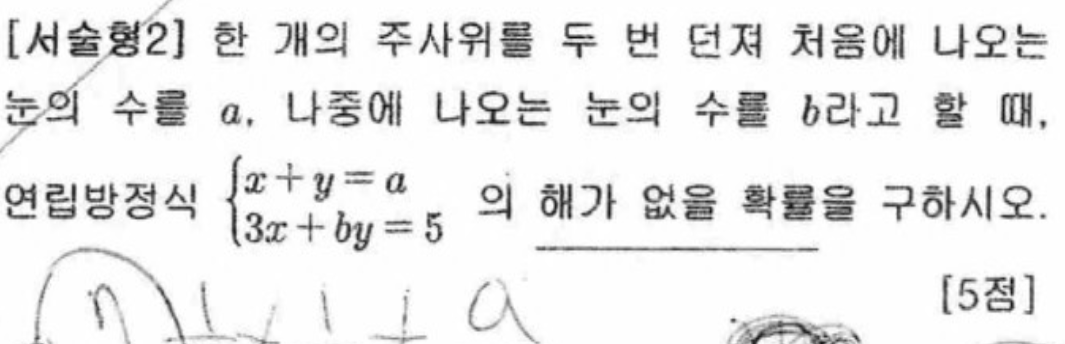 [서술형2] 한 개의 주사위를 두 번 던져 처음에 나오는
눈의 수를 a, 나중에 나오는 눈의 수를 b라고 할 때,
연립방정식 {x+y=a 3x+by=5 의 해가 없을 확률을 구하시오.
[5점]
a